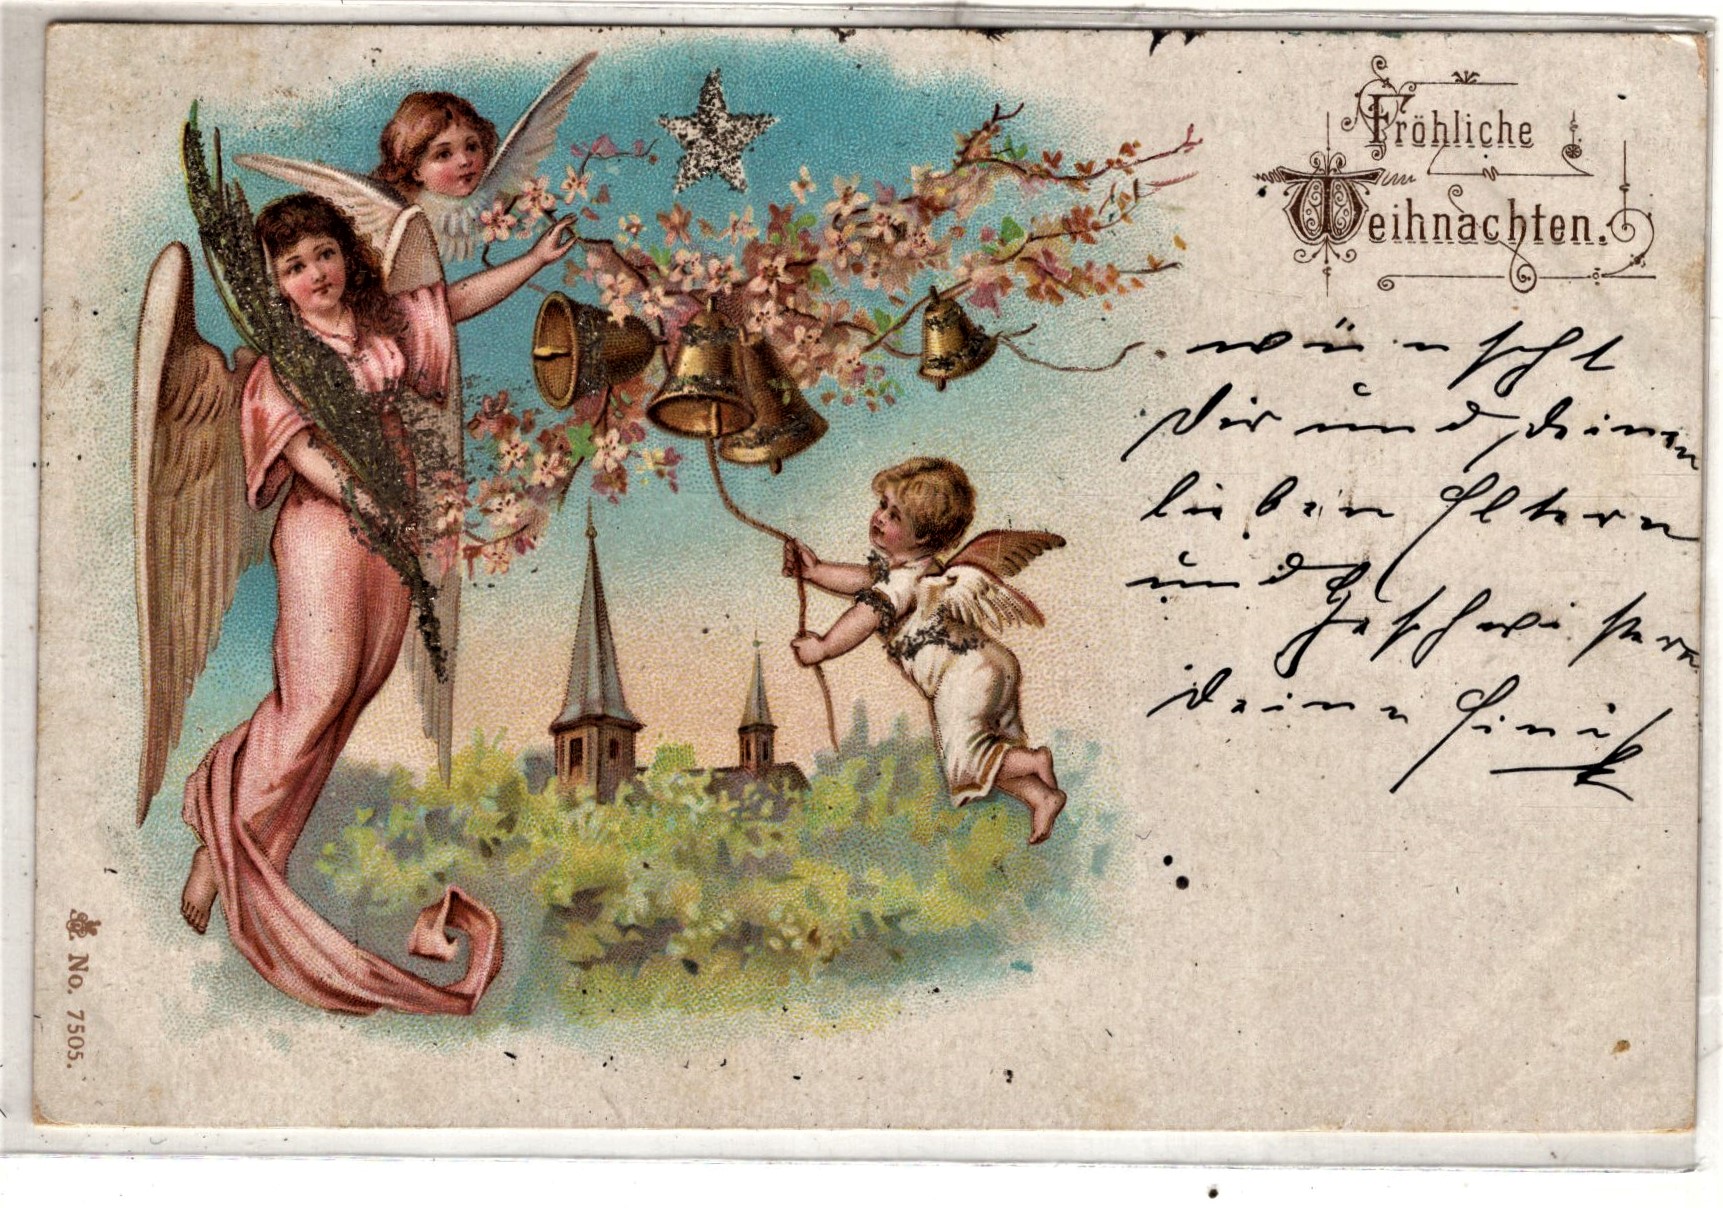 Fröhliche
Weihnachten.
wünscht
Dir und Deinen
lieben Eltern
und
Geschwistern
Deine
No. 7505.